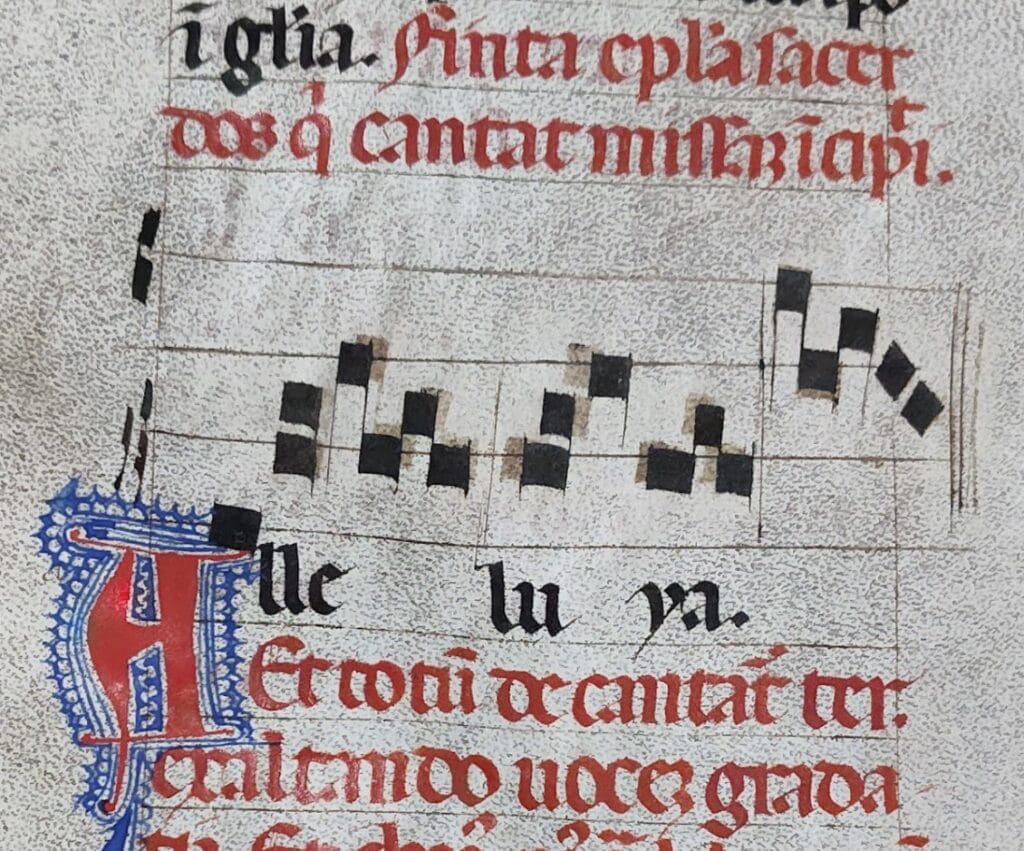 ī gl̄ia. Finita epl̄a sacer
dos qͥ cantat missaꝫ īcipit.
Alle lu ya.
Et totū decantat̄ ter.
exaltando uoceꝫ grada